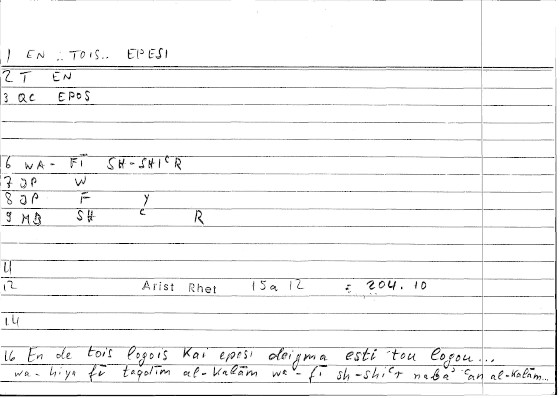 1 EN .. TOIS.. EPESI
2 T EN
3 QC EPOS
6 WA- FĪ SH-SHIᶜR
7 JP W
8 JP F Y
9 MB SH ᶜ R
11
12 Arist Rhet 15a 12 : 204.10
14
16 En de tois logois kai epesi deigma esti tou logou...
wa-hiya fī taqdīm al-kalām wa-fī sh-shiᶜr nabaʾ ᶜan al-kalām...